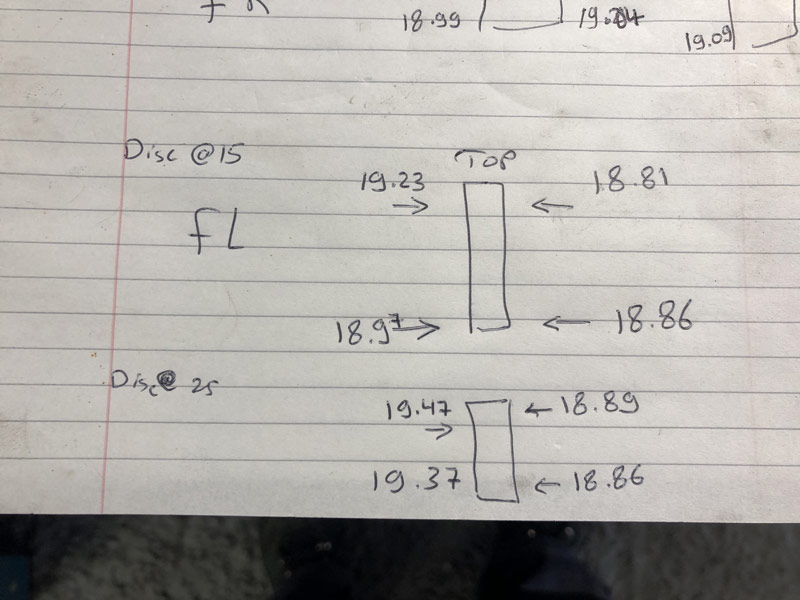 18.99 19.04
19.09
Disc @15
TOP
19.23 18.81
→ ←
FL
18.97 → ← 18.86
Disc@ 25
19.47 ← 18.89
→
19.37 ← 18.86